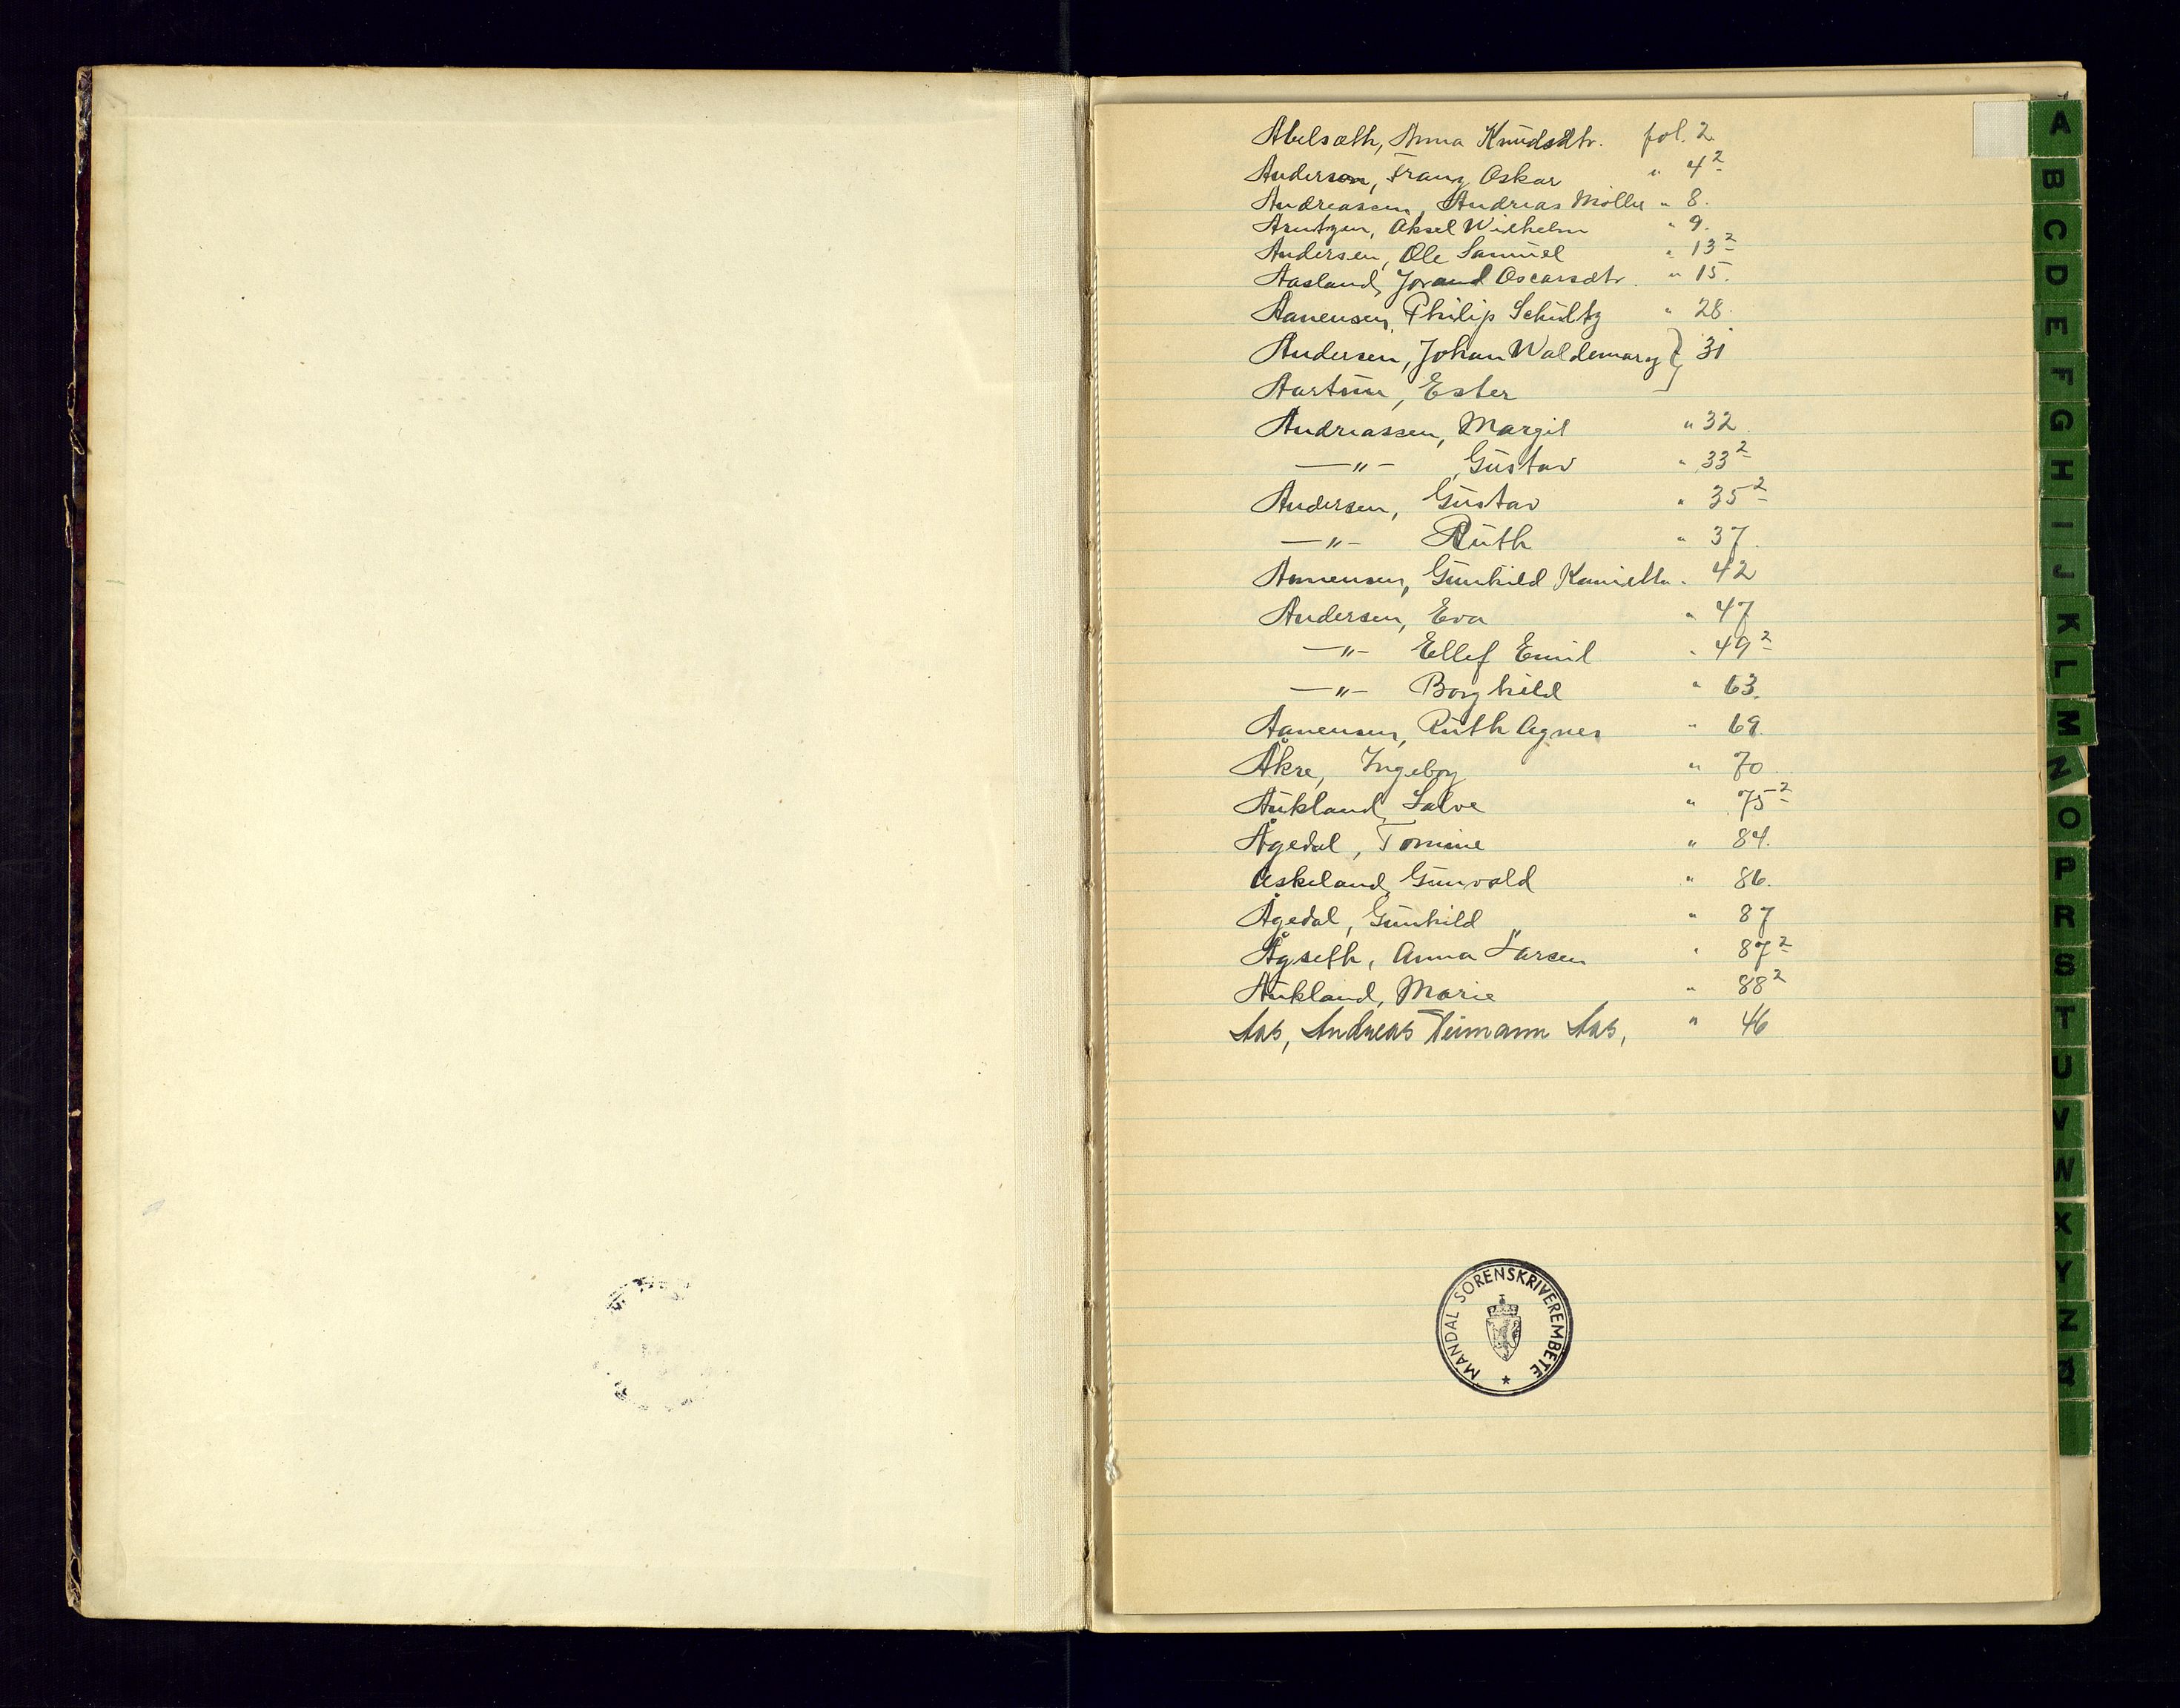 Abelsæth, Anna Knudsdtr. fol. 2
Anderson, Franz Oskar " 4²
Andreassen, Andreas Møller " 8.
Arntzen, Aksel Wilhelm " 9.
Andersen, Ole Samuel " 13²
Aasland, Jorand Oscarsdtr. " 15.
Aanensen, Philip Schultz " 28.
Andersen, Johan Waldemar } 31
Aartun, Ester
Andreassen, Margit " 32.
—"— Gustav " 33²
Andersen, Gustav " 35²
—"— Ruth " 37.
Annensen, Gunhild " 42
Andersen, Eva " 47
—"— Ellef Emil " 49²
—"— Borghild " 63.
Aanensen, Ruth Agnes " 69.
Åkre, Ingeborg " 70
Aukland, Salve " 75²
Ågedal, Tomine " 84.
Askeland, Gunvald " 86.
Ågedal, Gunhild " 87
Ågseth, Anna Larsen " 87²
Aukland, Marie " 88²
Aas, Andreas Aas, " 46
MANDAL SORENSKRIVEREMBETE
A
B
C
D
E
F
G
H
I
J
K
L
M
N
O
P
R
S
T
U
V
W
X
Y
Z
Ø